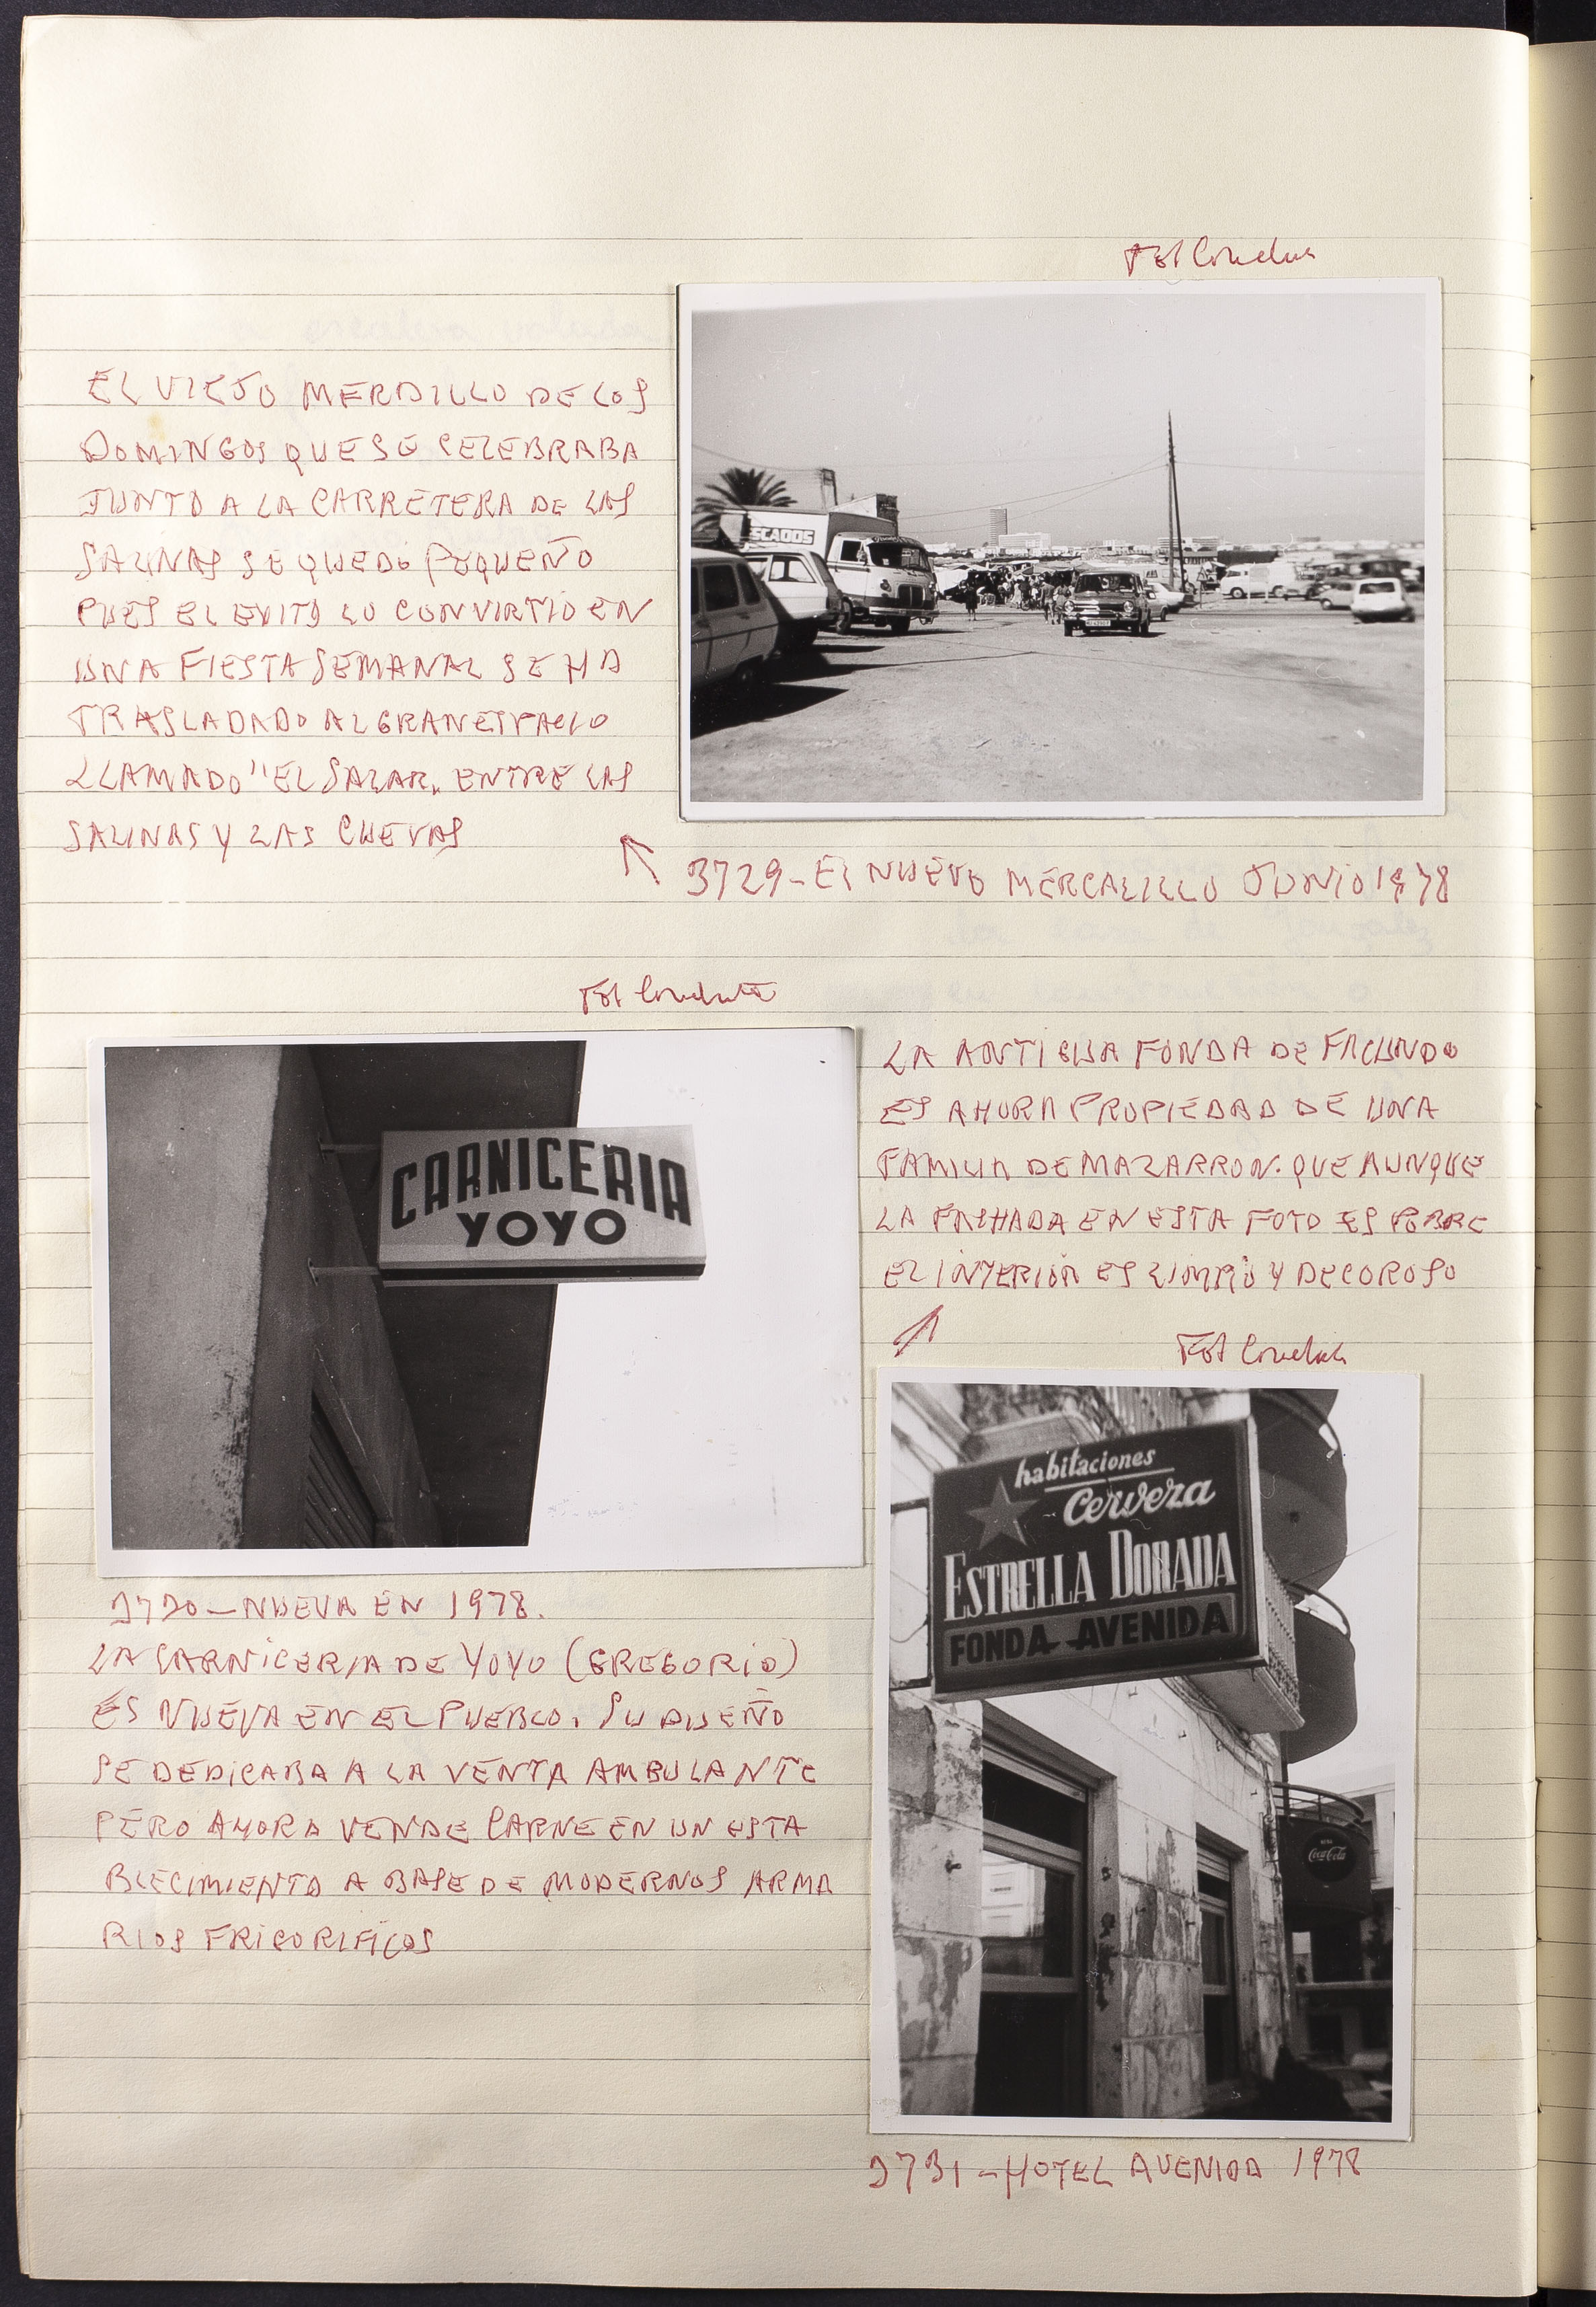 EL VIEJO MERDILLO DE LOS
DOMINGOS QUE SE CELEBRABA
JUNTO A LA CARRETERA DE LAS
SALINAS SE QUEDO PEQUEÑO
PUES EL EXITO LO CONVIRTIO EN
UNA FIESTA SEMANAL SE HA
TRASLADADO AL GRAN ESPACIO
LLAMADO "EL SALAR" ENTRE LAS
SALINAS Y LAS CUEVAS
Fot
SCADOS
3729-El NUEVO JUNIO 1978
Fot
CARNICERIA
YOYO
3730-NUEVA EN 1978.
LA CARNICERIA DE YOYO (GREGORIO)
ES NUEVA EN EL PUEBLO. SU DUEÑO
SE DEDICABA A LA VENTA AMBULANTE
PERO AHORA VENDE CARNE EN UN ESTA
BLECIMIENTO A BASE DE MODERNOS ARMA
RIOS FRIGORIFICOS
LA ANTIGUA FONDA DE FACUNDO
ES AHORA PROPIEDAD DE UNA
FAMILIA DE MAZARRON. QUE AUNQUE
LA FACHADA EN ESTA FOTO ES POBRE
EL INTERIOR ES LIMPIO Y DECOROSO
Fot
habitaciones
Cerveza
ESTRELLA DORADA
FONDA AVENIDA
Coca-Cola
3731-HOTEL AVENIDA 1978